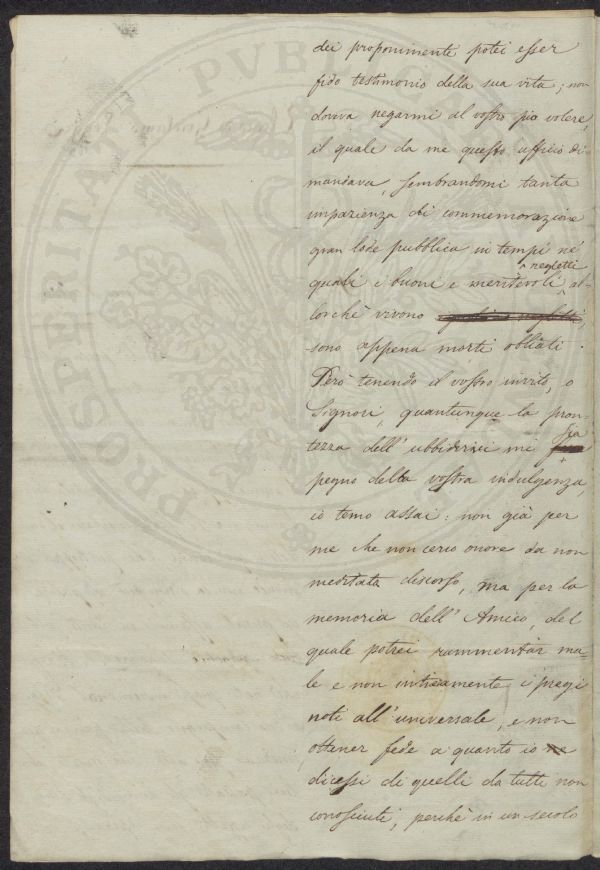 dei proponimenti potei esser
fido testimonio della sua vita; non
doveva negarmi al vostro pio volere,
il quale da me questo ufficio di-
mandava, sembrandomi tanta
impazienza di commemorazione
gran lode pubblica in tempi ne'
quali i buoni e meritevoli negletti al-
lorché vivono
sono appena morti obliati.
Però tenendo il vostro invito, o
Signori, quantunque la pron-
tezza dell'ubbidirvi mi sia
pegno della vostra indulgenza,
io temo assai: non già per
me che non cerco onore da non
meditata discorso, ma per la
memoria dell'Amico, del
quale potrei rammentar ma-
le e non intieramente i pregi
noti all'universale, e non
ottener fede a quanto io ne
dicessi di quelli da tutti non
conosciuti, perchè in un secolo
PROSPERITATI PVBLICAE